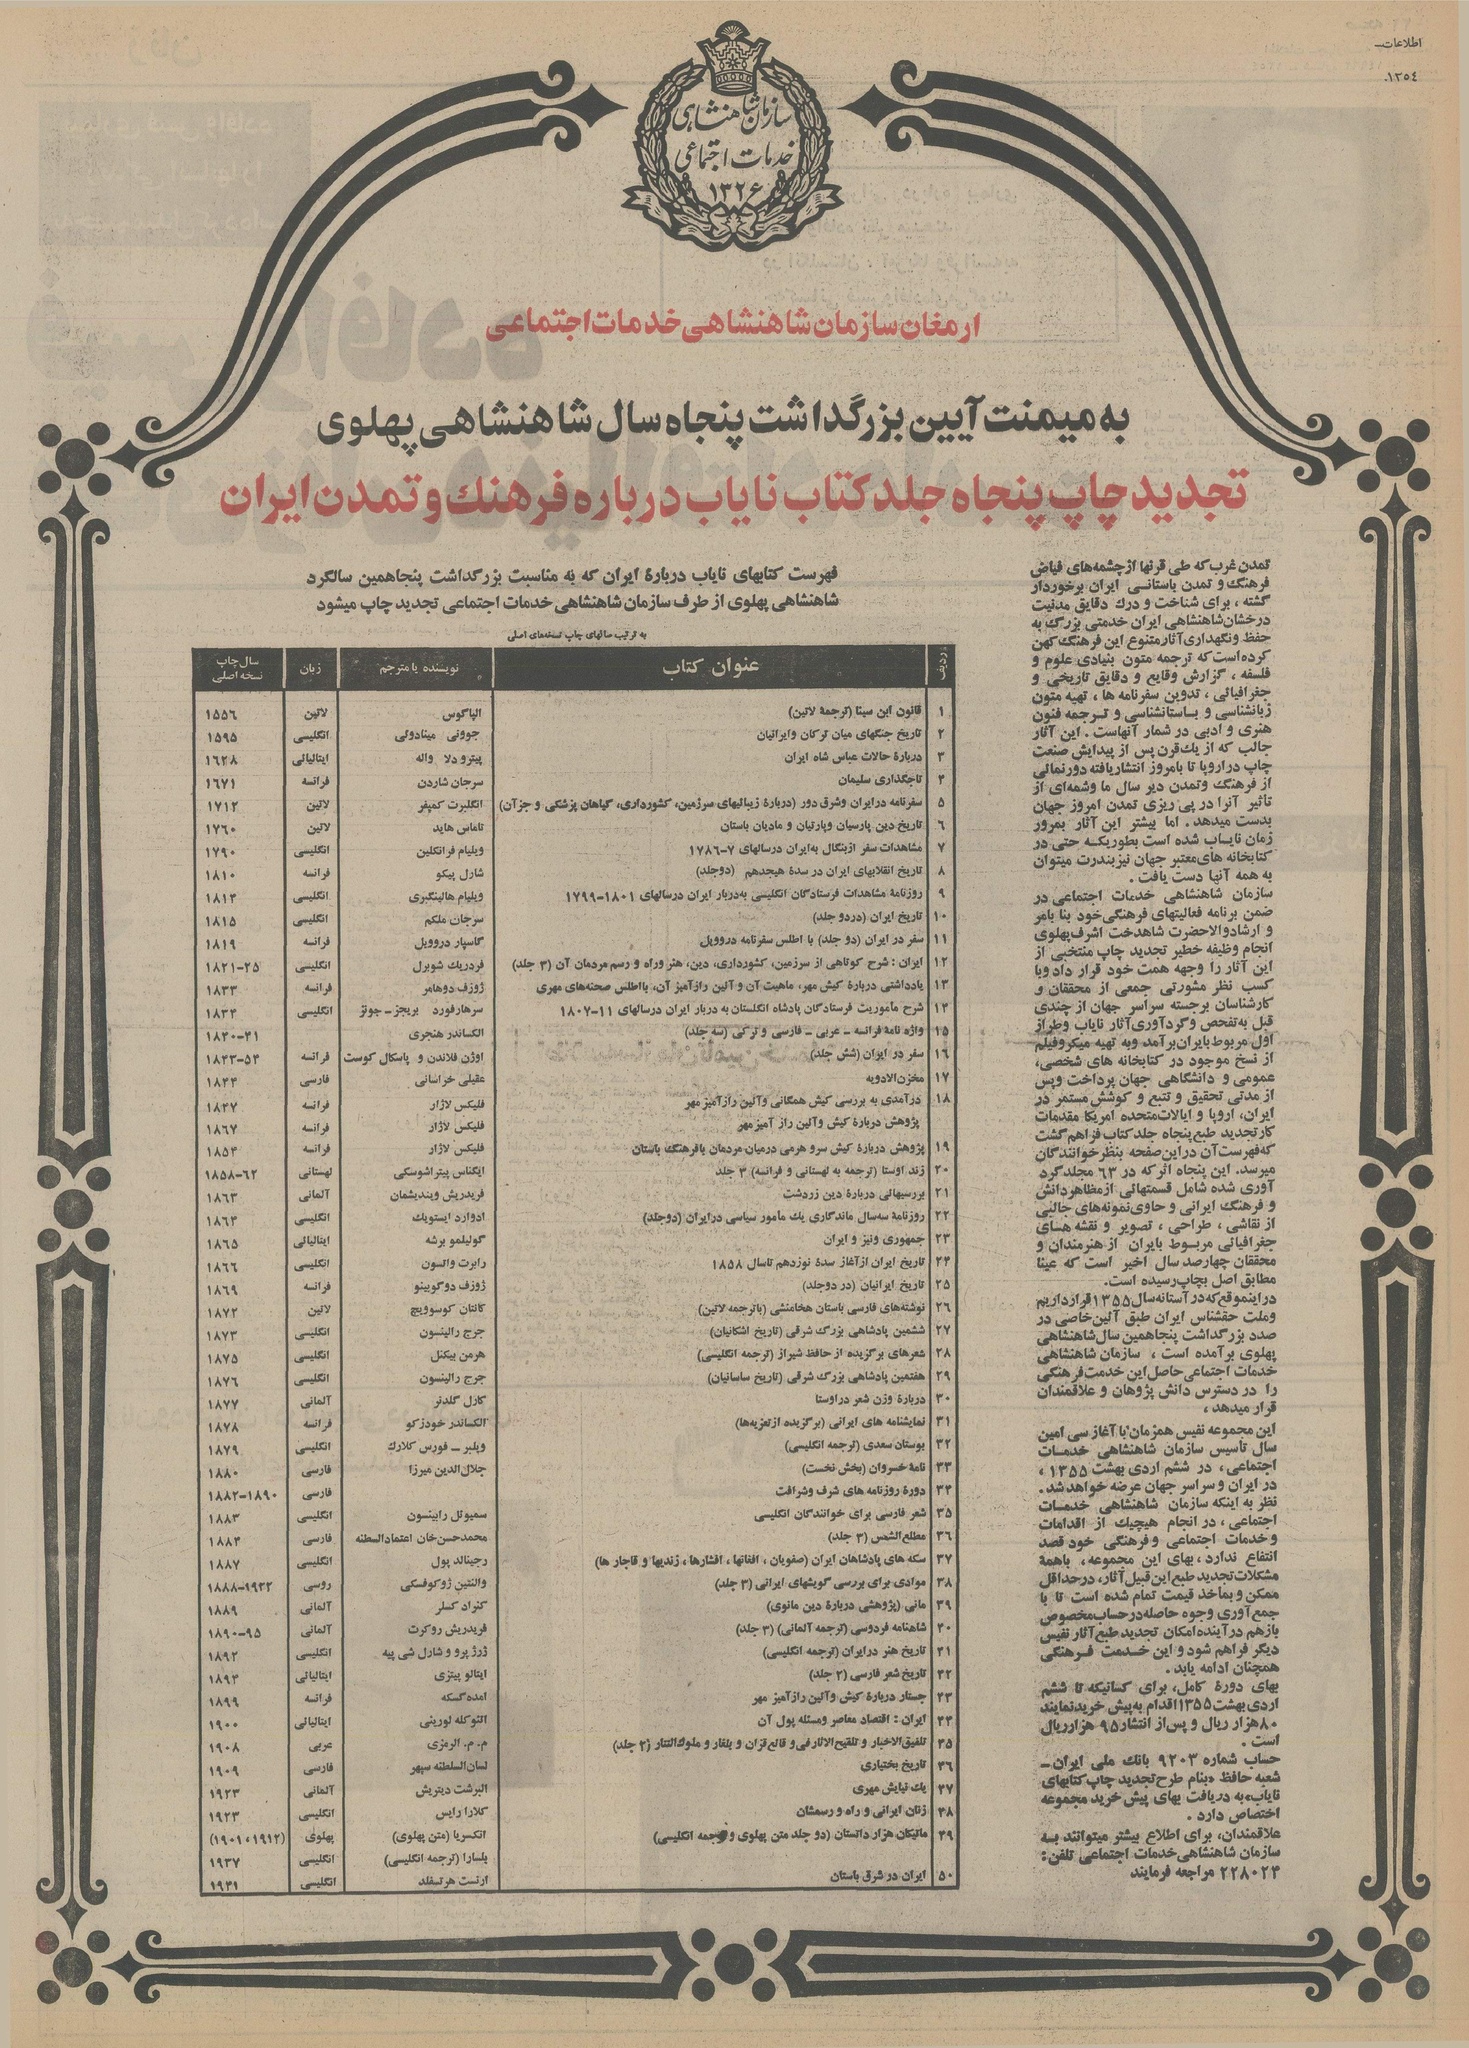 اطلاعات—
۱۳۵٤.
سازمان شاهنشاهی
خدمات اجتماعی
۱۳۲۶
ارمغان سازمان شاهنشاهی خدمات اجتماعی
به میمنت آیین بزرگداشت پنجاه سال شاهنشاهی پهلوی
تجدید چاپ پنجاه جلد کتاب نایاب درباره فرهنگ و تمدن ایران
تمدن غرب که طی قرنها از چشمه‌های فیاض
فرهنگ و تمدن باستانی ایران برخوردار
گشته ، برای شناخت و درك دقایق مدنیت
درخشان شاهنشاهی ایران خدمتی بزرگ به
حفظ و نگهداری آثار متنوع این فرهنگ کهن
کرده است که ترجمه متون بنیادی علوم و
فلسفه ، گزارش وقایع و دقایق تاریخی و
جغرافیائی ، تدوین سفرنامه ها ، تهیه متون
زبانشناسی و باستانشناسی و ترجمه فنون
هنری و ادبی در شمار آنهاست . این آثار
جالب که از یك قرن پس از پیدایش صنعت
چاپ در اروپا تا بامروز انتشار یافته دورنمائی
از فرهنگ و تمدن دیر سال ما و شمه‌ای از
تاثیر آنرا در پی ریزی تمدن امروز جهان
بدست میدهد . اما بیشتر این آثار بمرور
زمان نایاب شده است بطوریکه حتی در
کتابخانه های معتبر جهان نیز بندرت میتوان
به همه آنها دست یافت .
سازمان شاهنشاهی خدمات اجتماعی در
ضمن برنامه فعالیتهای فرهنگی خود بنا بامر
و ارشاد والاحضرت شاهدخت اشرف پهلوی
انجام وظیفه خطیر تجدید چاپ منتخبی از
این آثار را وجهه همت خود قرار داد و با
کسب نظر مشورتی جمعی از محققان و
کارشناسان برجسته سراسر جهان از چندی
قبل به تفحص و گردآوری آثار نایاب و طراز
اول مربوط بایران برآمد و به تهیه میکروفیلم
از نسخ موجود در کتابخانه های شخصی،
عمومی و دانشگاهی جهان پرداخت و پس
از مدتی تحقیق و تتبع و کوشش مستمر در
ایران، اروپا و ایالات متحده امریکا مقدمات
کار تجدید طبع پنجاه جلد کتاب فراهم گشت
که فهرست آن در این صفحه بنظر خوانندگان
میرسد. این پنجاه اثر که در ۶۳ مجلد گرد
آوری شده شامل قسمتهائی از مظاهر دانش
و فرهنگ ایرانی و حاوی نمونه‌های جالبی
از نقاشی ، طراحی ، تصویر و نقشه های
جغرافیائی مربوط بایران از هنرمندان و
محققان چهارصد سال اخیر است که عینا
مطابق اصل بچاپ رسیده است.
در اینموقع که در آستانه سال ۱۳۵۵ قرار داریم
و ملت حقشناس ایران طبق آئین خاصی در
صدد بزرگداشت پنجاهمین سال شاهنشاهی
پهلوی برآمده است ، سازمان شاهنشاهی
خدمات اجتماعی حاصل این خدمت فرهنگی
را در دسترس دانش پژوهان و علاقمندان
قرار میدهد ،
این مجموعه نفیس همزمان با آغاز سی امین
سال تأسیس سازمان شاهنشاهی خدمات
اجتماعی، در ششم اردی بهشت ۱۳۵۵ ،
در ایران و سراسر جهان عرضه خواهد شد.
نظر به اینکه سازمان شاهنشاهی خدمات
اجتماعی ، در انجام هیچیك از اقدامات
و خدمات اجتماعی و فرهنگی خود قصد
انتفاع ندارد ، بهای این مجموعه، باهمهٔ
مشکلات تجدید طبع این قبیل آثار، در حداقل
ممکن و بمأخذ قیمت تمام شده است تا با
جمع آوری وجوه حاصله در حساب مخصوص
بازهم در آینده امکان تجدید طبع آثار نفیس
دیگر فراهم شود و این خدمت فرهنگی
همچنان ادامه یابد .
بهای دورهٔ کامل، برای کسانیکه تا ششم
اردی بهشت ۱۳۵۵ اقدام به پیش خرید نمایند
۸۰ هزار ریال و پس از انتشار ۹۵ هزار ریال
است .
حساب شماره ۹۲۰۳ بانك ملی ایران—
شعبه حافظ «بنام طرح تجدید چاپ کتابهای
نایاب» به دریافت بهای پیش خرید مجموعه
اختصاص دارد .
علاقمندان، برای اطلاع بیشتر میتوانند به
سازمان شاهنشاهی خدمات اجتماعی تلفن:
۲۲۸۰۲۴ مراجعه فرمایند
فهرست کتابهای نایاب دربارهٔ ایران که به مناسبت بزرگداشت پنجاهمین سالگرد
شاهنشاهی پهلوی از طرف سازمان شاهنشاهی خدمات اجتماعی تجدید چاپ میشود
به ترتیب سالهای چاپ نسخه‌های اصلی
ردیف عنوان کتاب نویسنده یا مترجم زبان سال چاپ نسخه اصلی
۱ قانون ابن سینا (ترجمهٔ لاتین) الپاگوس لاتین ۱۵۵۶
۲ تاریخ جنگهای میان ترکان و ایرانیان جوونی مینادوئی انگلیسی ۱۵۹۵
۳ دربارهٔ حالات عباس شاه ایران پیترو دلا واله ایتالیائی ۱۶۲۸
۴ تاجگذاری سلیمان سرجان شاردن فرانسه ۱۶۷۱
۵ سفرنامه در ایران و شرق دور (دربارهٔ زیبائیهای سرزمین، کشورداری، گیاهان پزشکی و جز آن) انگلبرت کمپفر لاتین ۱۷۱۲
۶ تاریخ دین پارسیان و پارتیان و مادیان باستان تاماس هاید لاتین ۱۷۶۰
۷ مشاهدات سفر از بنگال به ایران در سالهای ۷-۱۷۸۶ ویلیام فرانکلین انگلیسی ۱۷۹۰
۸ تاریخ انقلابهای ایران در سدهٔ هیجدهم (دو جلد) شارل پیکو فرانسه ۱۸۱۰
۹ روزنامهٔ مشاهدات فرستادگان انگلیسی به دربار ایران در سالهای ۱۸۰۱-۱۷۹۹ ویلیام هالینگبری انگلیسی ۱۸۱۴
۱۰ تاریخ ایران (در دو جلد) سرجان ملکم انگلیسی ۱۸۱۵
۱۱ سفر در ایران (دو جلد) با اطلس سفرنامه دروویل گاسپار دروویل فرانسه ۱۸۱۹
۱۲ ایران : شرح کوتاهی از سرزمین، کشورداری، دین، هنر و راه و رسم مردمان آن (۳ جلد) فردریك شوبرل انگلیسی ۲۵-۱۸۲۱
۱۳ یادداشتی دربارهٔ کیش مهر، ماهیت آن و آئین رازآمیز آن، با اطلس صحنه‌های مهری ژوزف دوهامر فرانسه ۱۸۳۳
۱۴ شرح مأموریت فرستادگان پادشاه انگلستان به دربار ایران در سالهای ۱۱-۱۸۰۷ سرهارفورد بریجز-جونز انگلیسی ۱۸۳۴
۱۵ واژه نامهٔ فرانسه - عربی - فارسی و ترکی (سه جلد) الکساندر هنجری ۴۱-۱۸۴۰
۱۶ سفر در ایران (شش جلد) اوژن فلاندن و پاسکال کوست فرانسه ۵۴-۱۸۴۳
۱۷ مخزن الادویه عقیلی خراسانی فارسی ۱۸۴۴
۱۸ درآمدی به بررسی کیش همگانی و آئین رازآمیز مهر فلیکس لاژار فرانسه ۱۸۴۷
پژوهش دربارهٔ کیش و آئین راز آمیز مهر فلیکس لاژار فرانسه ۱۸۶۷
۱۹ پژوهش دربارهٔ کیش سرو هرمی در میان مردمان با فرهنگ باستان فلیکس لاژار فرانسه ۱۸۵۴
۲۰ زند اوستا (ترجمه به لهستانی و فرانسه) ۳ جلد ایگناس پیتراشوسکی لهستانی ۶۲-۱۸۵۸
۲۱ بررسیهائی دربارهٔ دین زردشت فریدریش ویندیشمان آلمانی ۱۸۶۳
۲۲ روزنامهٔ سه سال ماندگاری یك مأمور سیاسی در ایران (دو جلد) ادوارد ایستویك انگلیسی ۱۸۶۴
۲۳ جمهوری ونیز و ایران گولیلمو برشه ایتالیائی ۱۸۶۵
۲۴ تاریخ ایران از آغاز سدهٔ نوزدهم تا سال ۱۸۵۸ رابرت واتسون انگلیسی ۱۸۶۶
۲۵ تاریخ ایرانیان (در دو جلد) ژوزف دوگوبینو فرانسه ۱۸۶۹
۲۶ نوشته‌های فارسی باستان هخامنشی (با ترجمه لاتین) کائتان کوسوویچ لاتین ۱۸۷۲
۲۷ ششمین پادشاهی بزرگ شرقی (تاریخ اشکانیان) جرج رالینسون انگلیسی ۱۸۷۳
۲۸ شعرهای برگزیده از حافظ شیراز (ترجمه انگلیسی) هرمن بیکنل انگلیسی ۱۸۷۵
۲۹ هفتمین پادشاهی بزرگ شرقی (تاریخ ساسانیان) جرج رالینسون انگلیسی ۱۸۷۶
۳۰ دربارهٔ وزن شعر در اوستا کارل گلدنر آلمانی ۱۸۷۷
۳۱ نمایشنامه های ایرانی (برگزیده از تعزیه‌ها) الکساندر خودزکو فرانسه ۱۸۷۸
۳۲ بوستان سعدی (ترجمه انگلیسی) ویلبر - فورس کلارك انگلیسی ۱۸۷۹
۳۳ نامهٔ خسروان (بخش نخست) جلال‌الدین میرزا فارسی ۱۸۸۰
۳۴ دورهٔ روزنامه های شرف و شرافت فارسی ۱۸۹۰-۱۸۸۲
۳۵ شعر فارسی برای خوانندگان انگلیسی سمیوئل رابینسون انگلیسی ۱۸۸۳
۳۶ مطلع الشمس (۳ جلد) محمدحسن خان اعتمادالسطنه فارسی ۱۸۸۴
۳۷ سکه های پادشاهان ایران (صفویان ، افغانها ، افشارها ، زندیها و قاجار ها) رجینالد پول انگلیسی ۱۸۸۷
۳۸ موادی برای بررسی گویشهای ایرانی (۳ جلد) والنتین ژوکوفسکی روسی ۱۹۲۲-۱۸۸۸
۳۹ مانی (پژوهشی دربارهٔ دین مانوی) کنراد کسلر آلمانی ۱۸۸۹
۴۰ شاهنامه فردوسی (ترجمه آلمانی) (۳ جلد) فریدریش روکرت آلمانی ۹۵-۱۸۹۰
۴۱ تاریخ هنر در ایران (ترجمه انگلیسی) ژرژ پرو و شارل شی پیه انگلیسی ۱۸۹۲
۴۲ تاریخ شعر فارسی (۲ جلد) ایتالو پیتزی ایتالیائی ۱۸۹۴
۴۳ جستار دربارهٔ کیش و آئین رازآمیز مهر امده گسکه فرانسه ۱۸۹۹
۴۴ ایران : اقتصاد معاصر و مسئله پول آن اتئوکله لورینی ایتالیائی ۱۹۰۰
۴۵ تلفیق‌الاخبار و تلقیح‌الاثار فی وقائع قزان و بلغار و ملوك‌التتار (۲ جلد) م. م. الرمزی عربی ۱۹۰۸
۴۶ تاریخ بختیاری لسان‌السلطنه سپهر فارسی ۱۹۰۹
۴۷ یك نیایش مهری البرشت دیتریش آلمانی ۱۹۲۳
۴۸ زنان ایرانی و راه و رسمشان کلارا رایس انگلیسی ۱۹۲۳
۴۹ ماتیکان هزار داتستان (دو جلد متن پهلوی و ترجمه انگلیسی) انکسریا (متن پهلوی) پهلوی (۱۹۱۲ ، ۱۹۰۱)
بلسارا (ترجمه انگلیسی) انگلیسی ۱۹۳۷
۵۰ ایران در شرق باستان ارنست هرتسفلد انگلیسی ۱۹۴۱